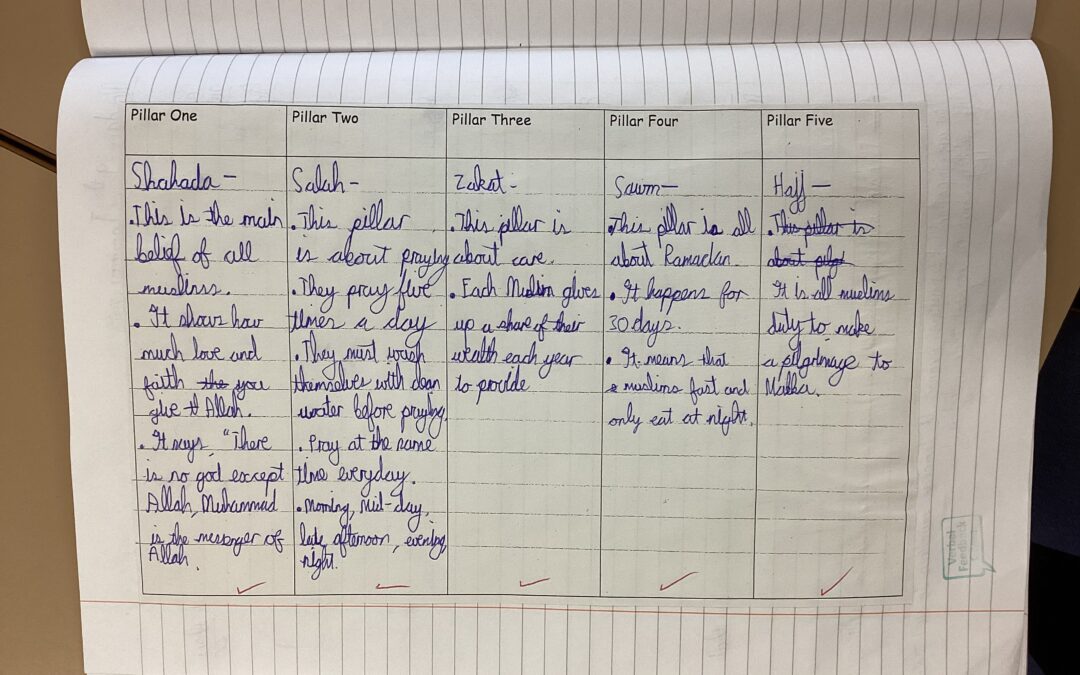 Pillar One
Shahada -
• This is the main
belief of all
muslims.
• It shows how
much love and
faith the you
give to Allah.
• It says, "There
is no god except
Allah, Muhammad
is the messenger of
Allah.
Pillar Two
Salah -
• This pillar
is about praying
• They pray five
times a day
• They must wash
themselves with clean
water before praying.
• Pray at the same
time everyday.
• Morning, Mid-day,
late afternoon, evening
night.
Pillar Three
Zakat -
• This pillar is
about care.
• Each Muslim gives
up a share of their
wealth each year
to provide
Pillar Four
Sawm -
• This pillar is all
about Ramadan
• It happens for
30 days.
• It means that
muslims fast and
only eat at night.
Pillar Five
Hajj -
• This pillar is
about pilg
It is all muslims
duty to make
a pilgrimage to
Makka.
Verbal
Feedback